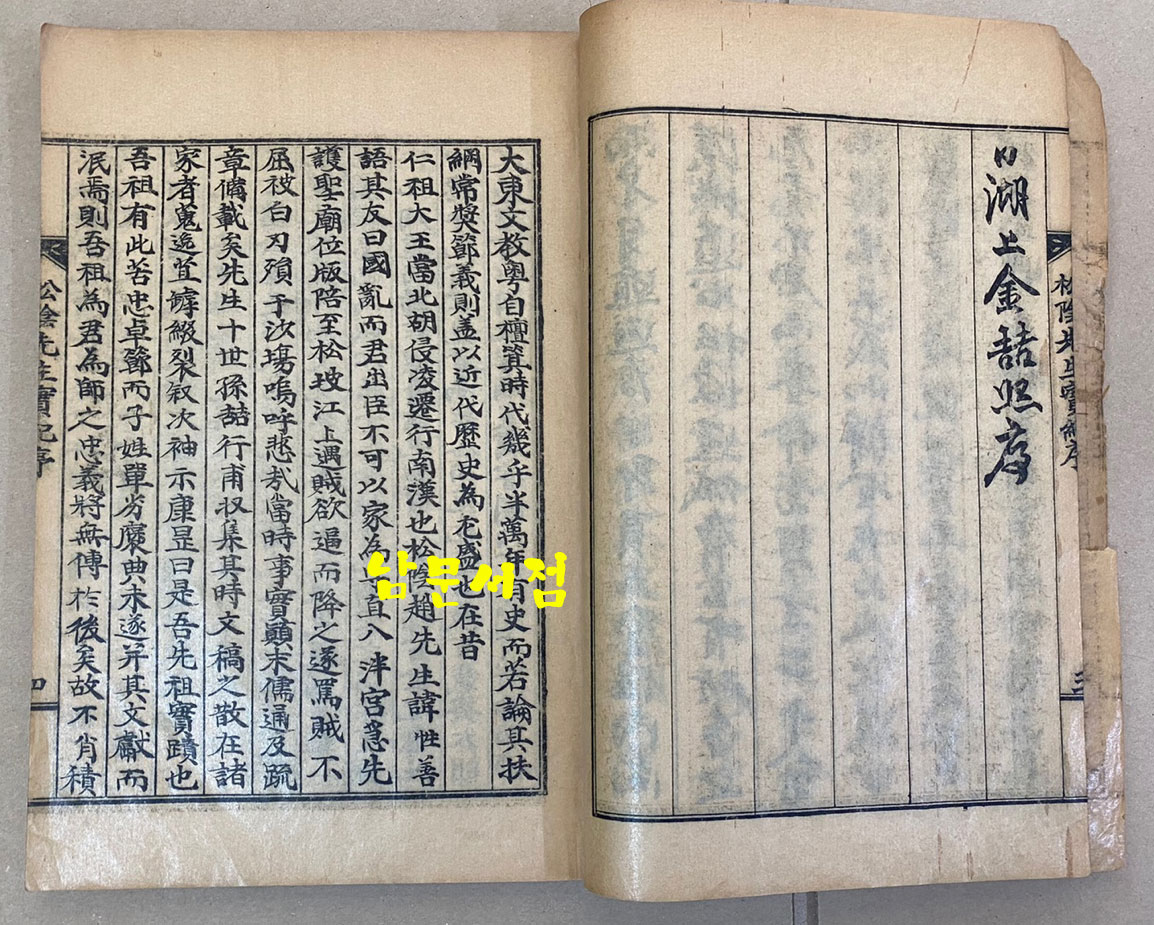 湖上金喆熙序
松陰先生實紀序
三
大東文教粤自檀箕時代幾乎半萬年有史而若論其扶
綱常奬節義則盖以近代歷史為尤盛也在昔
仁祖大王當北胡侵凌遷行南漢也松陰趙先生諱性善
語其友曰國亂而君出臣不可以家為乎直入泮宮急先
護聖廟位版陪至松坡江上遇賊欲逼而降之遂罵賊不
屈被白刃殞于沙場嗚呼悲哉當時事實顚末儒通及疏
章備載矣先生十世孫喆行甫収集其時文稿之散在諸
家者蒐逸苴罅綴裂叙次袖示康昱曰是吾先祖實蹟也
吾祖有此苦忠卓節而子姓單劣褒典未遂并其文獻而
泯焉則吾祖為君為師之忠義將無傳於後矣故不肖積
松陰先生實紀序
四
남문서점